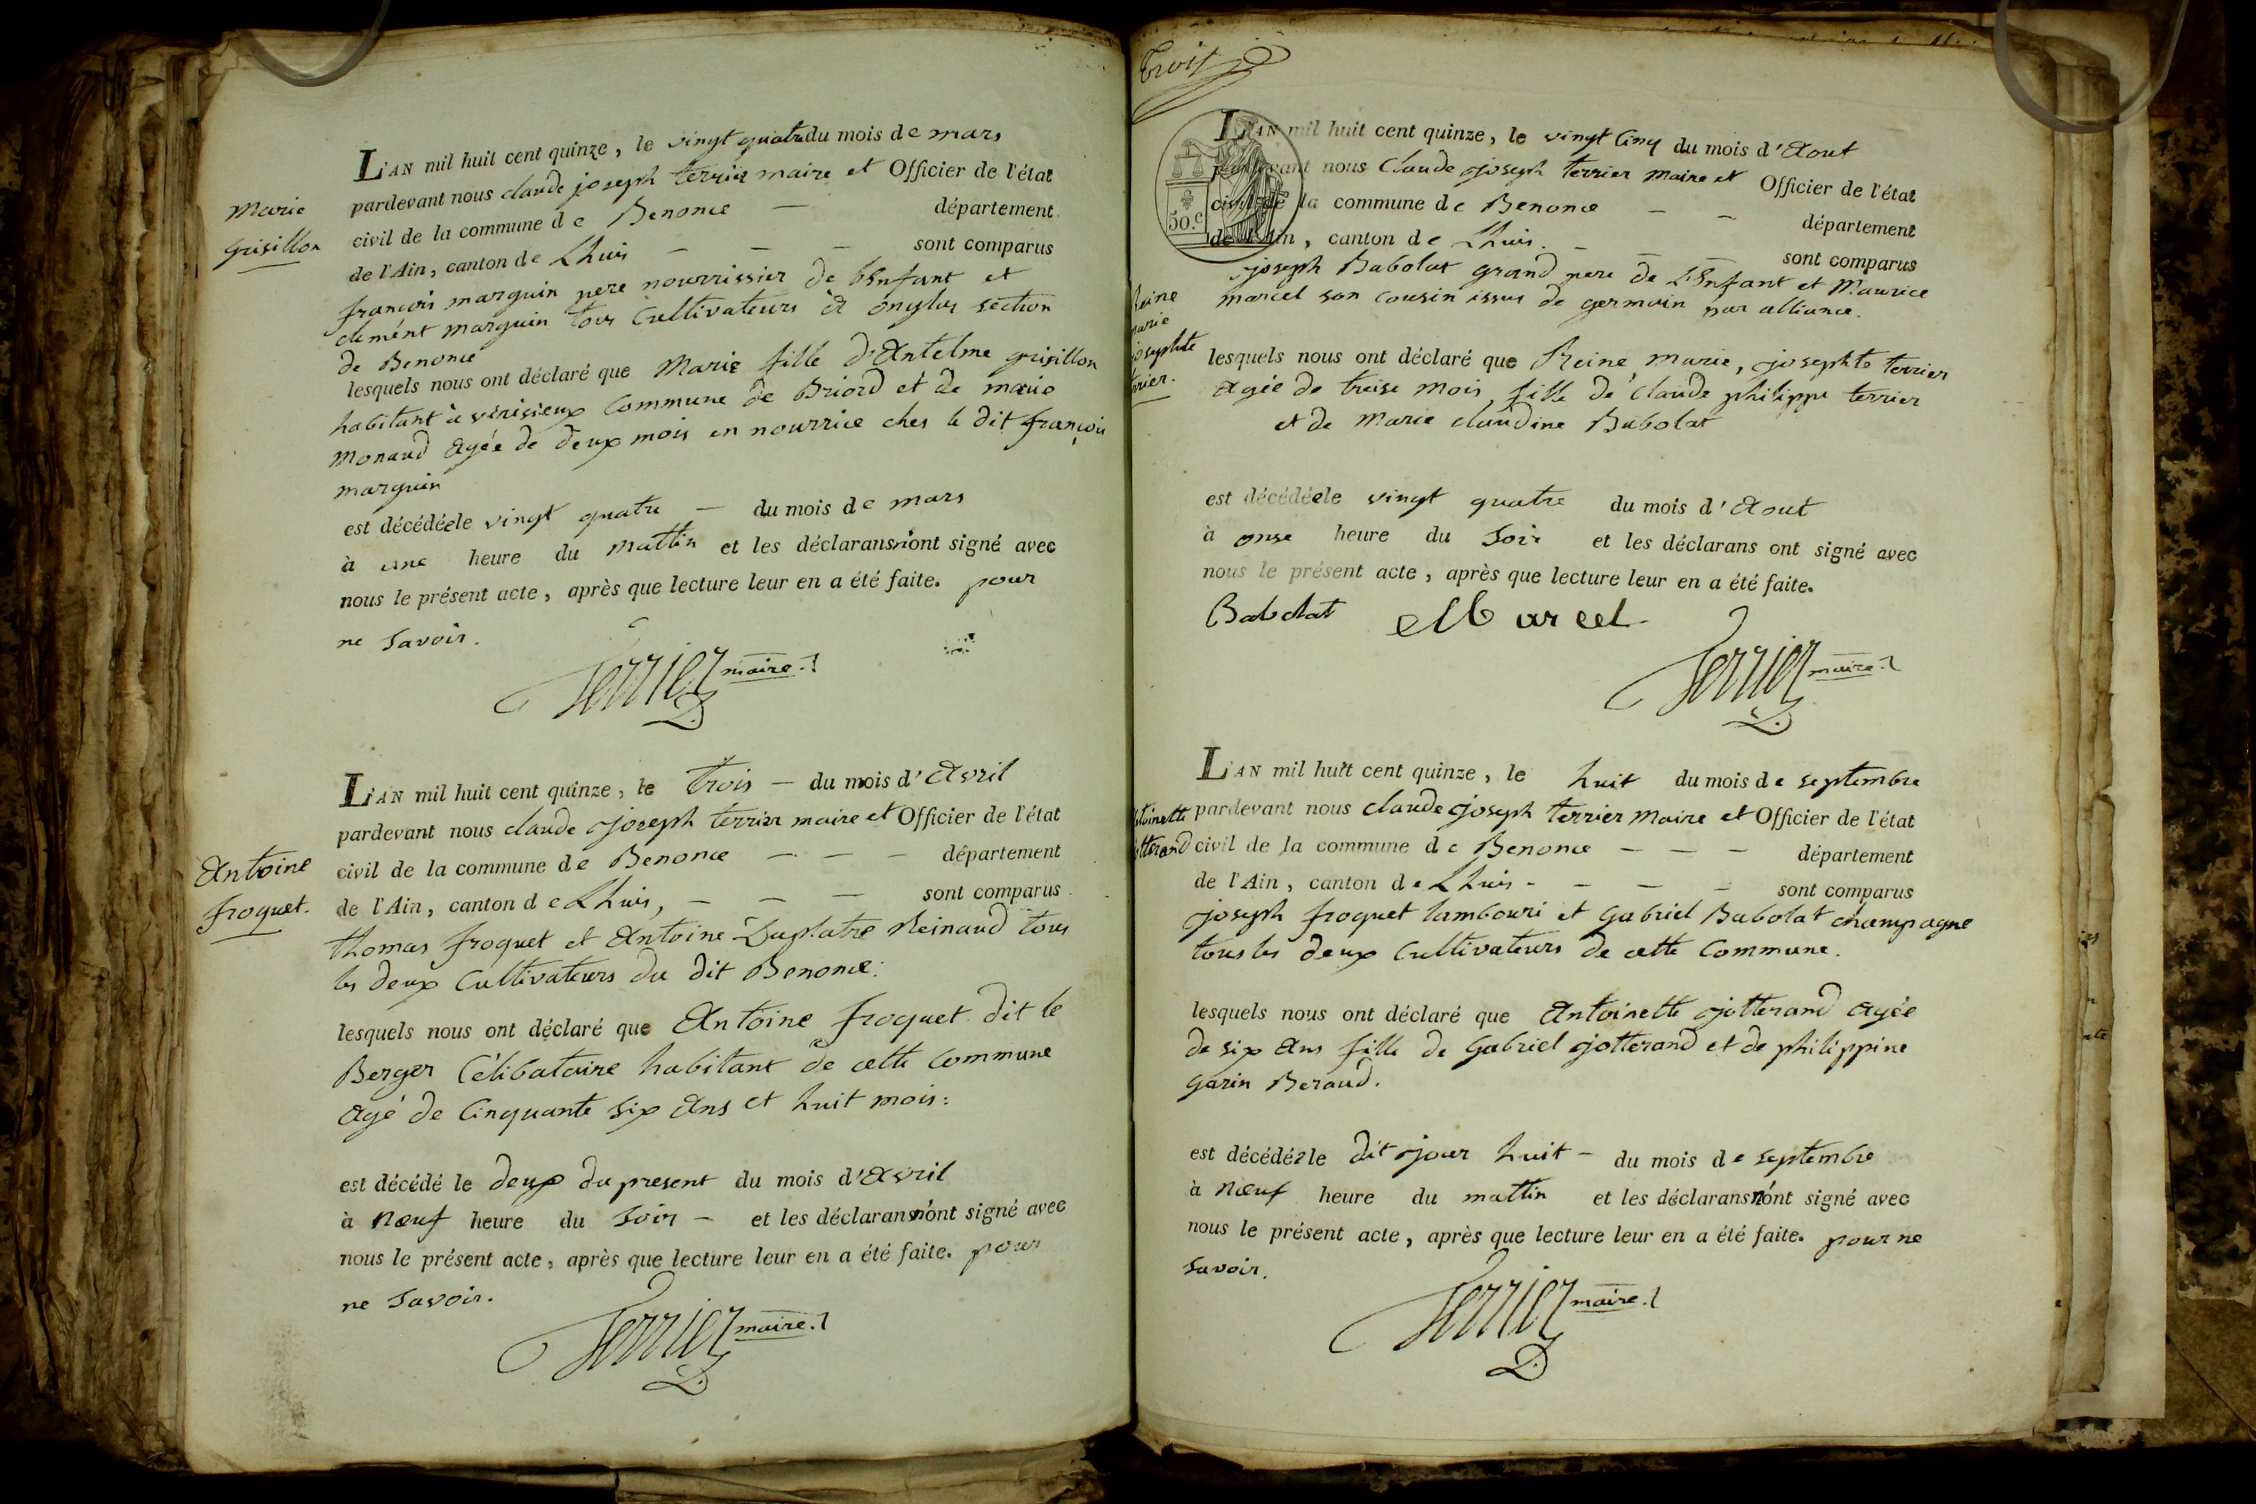 L'AN mil huit cent quinze, le vingt quatre du mois de mars
pardevant nous claude joseph terrier maire et Officier de l'état
civil de la commune de Benonce — département
de l'Ain, canton de Lhuis — — — sont comparus
françois marguin pere nourrissier de l'Enfant et
clemént marguin tous Cultivateurs à onglas section
de Benonce
Marie
Grisillon
lesquels nous ont déclaré que Marie fille d'Antelme grisillon
habitant à vérisieux Commune de Briord et de marie
Monaud Agée de deux mois en nourrice ches le dit françois
marguin
est décédée le vingt quatre — du mois de mars
à une heure du mattin et les déclarans n'ont signé avec
nous le présent acte, après que lecture leur en a été faite. pour
ne savoir.
Terrier maire.
L'AN mil huit cent quinze, le trois — du mois d'Avril
pardevant nous claude joseph terrier maire et Officier de l'état
civil de la commune de Benonce — — — département
de l'Ain, canton de Lhuis, — — — sont comparus
thomas froquet et Antoine Duplatre Reinaud tous
les deux Cultivateurs du dit Benonce.
Antoine
froquet.
lesquels nous ont déclaré que Antoine froquet dit le
Berger Célibataire habitant de cette Commune
Agé de Cinquante six Ans et huit mois:
est décédé le deux du present du mois d'Avril
à Nœuf heure du Soir — et les déclarans n'ont signé avec
nous le présent acte, après que lecture leur en a été faite. pour
ne savoir.
Terrier maire.
trois
50.c
L'AN mil huit cent quinze, le vingt Cinq du mois d'Aout
pardevant nous Claude joseph terrier maire et Officier de l'état
civil de la commune de Benonce — — département
de l'Ain, canton de Lhuis. — — — sont comparus
joseph Babolat grand pere de l'Enfant et Maurice
marcel son cousin issus de germain par alliance.
Reine
marie
josephte
terrier.
lesquels nous ont déclaré que Reine, marie, josephte terrier
Agée de treise mois fille de Claude philippe terrier
et de Marie claudine Babolat
est décédée le vingt quatre du mois d'Aout
à onse heure du soir et les déclarans ont signé avec
nous le présent acte, après que lecture leur en a été faite.
Babolat Marcel
Terrier maire.
L'AN mil huit cent quinze, le huit du mois de septembre
pardevant nous claude joseph terrier maire et Officier de l'état
civil de la commune de Benonce — — — département
de l'Ain, canton de Lhuis — — — — sont comparus
joseph froquet lambouri et Gabriel Babolat champagne
tous les deux Cultivateurs de cette Commune.
Antoinette
jotterand
lesquels nous ont déclaré que Antoinette jotterand Agée
de six Ans fille de Gabriel jotterand et de philippine
Garin Beraud.
est décédée le dit jour huit — du mois de septembre
à Nœuf heure du mattin et les déclarans n'ont signé avec
nous le présent acte, après que lecture leur en a été faite. pour ne
savoir.
Terrier maire.